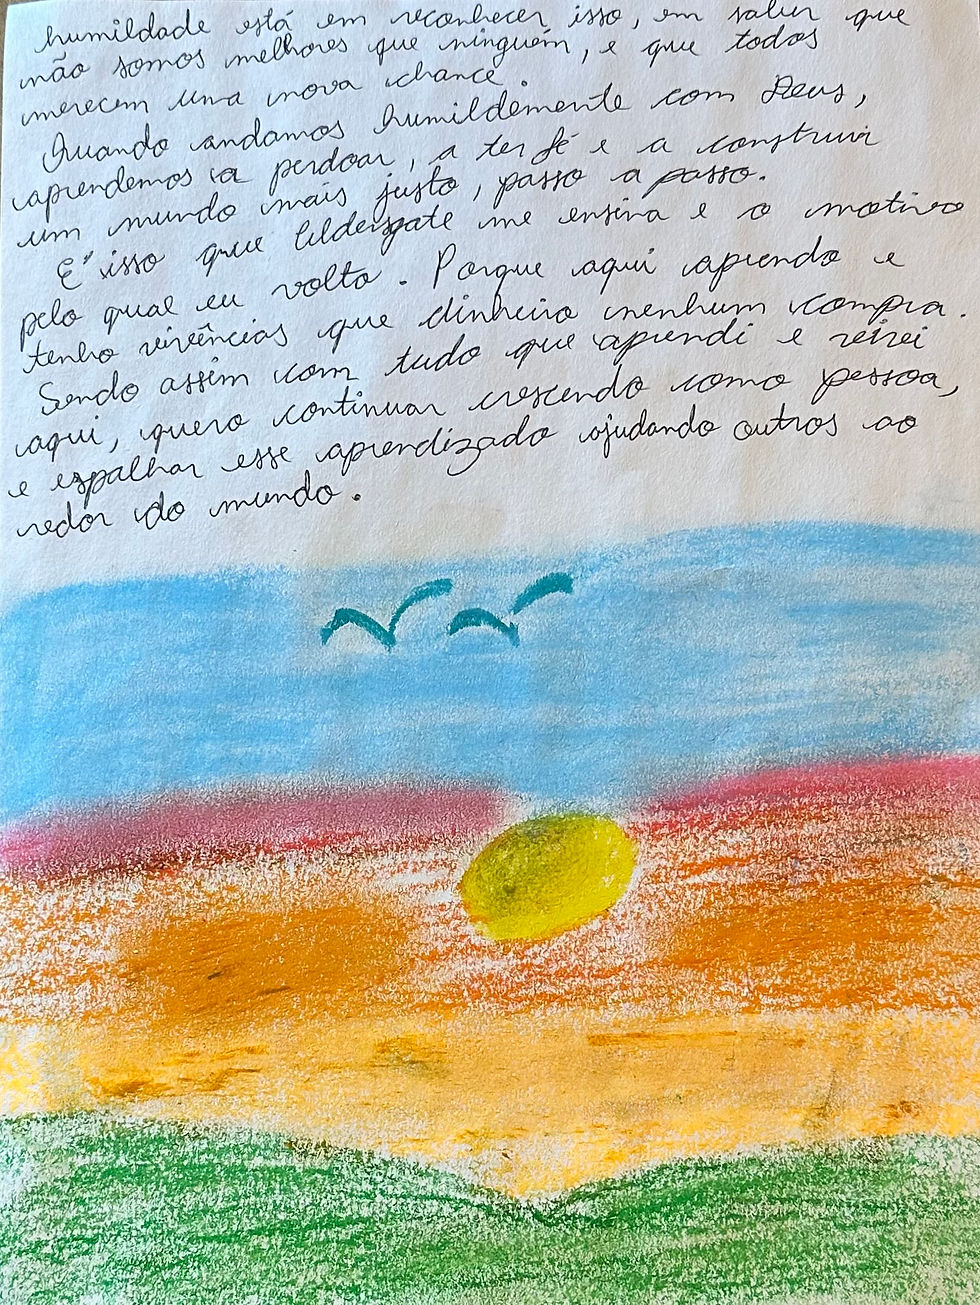 humildade está em reconhecer isso, em saber que
não somos melhores que ninguém, e que todos
merecem uma nova chance.
Quando andamos humildemente com Deus,
aprendemos a perdoar, a ter fé e a construir
um mundo mais justo, passo a passo.
E' isso que me ensina e o motivo
pelo qual eu volto. Porque aqui aprendo e
tenho vivências que dinheiro nenhum compra.
Sendo assim com tudo que aprendi e
aqui, quero continuar crescendo como pessoa,
e espalhar esse aprendizado ajudando outros ao
redor do mundo.